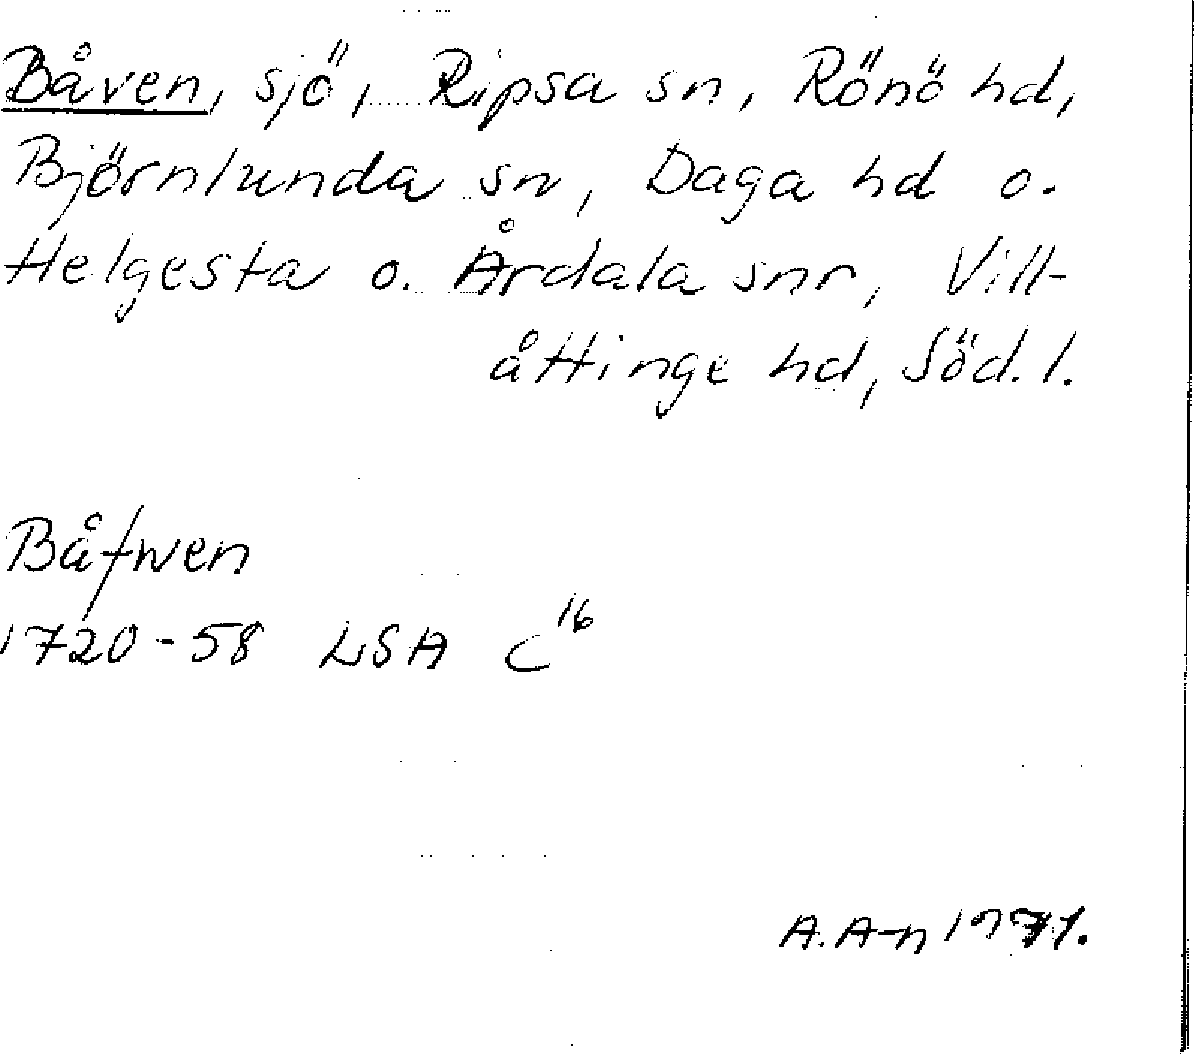 Båven, sjö, Ripsa sn, Rönö hd,
Björnlunda sn, Daga hd o.
Helgesta o. Årdala snr, Vill-
åttinge hd, Söd.l.
Båfwen
1720-58 LSA C16
A.A-n 1971.